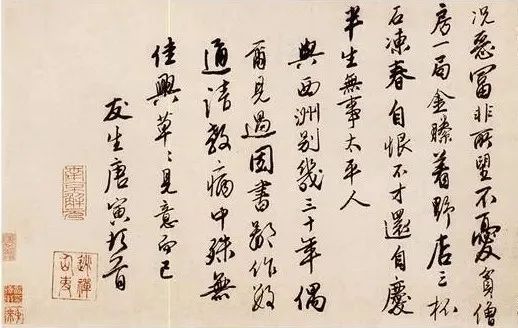 况惡富非所望不憂貧僧
房一局金縢着野店三杯
石凍春自恨不才還自慶
半生無事太平人
與西洲別幾三十年偶
爾見過因書鄙作并
圖請教病中殊無
佳興草〻見意而已
友生唐寅頓首
南京解元
逃禪仙吏